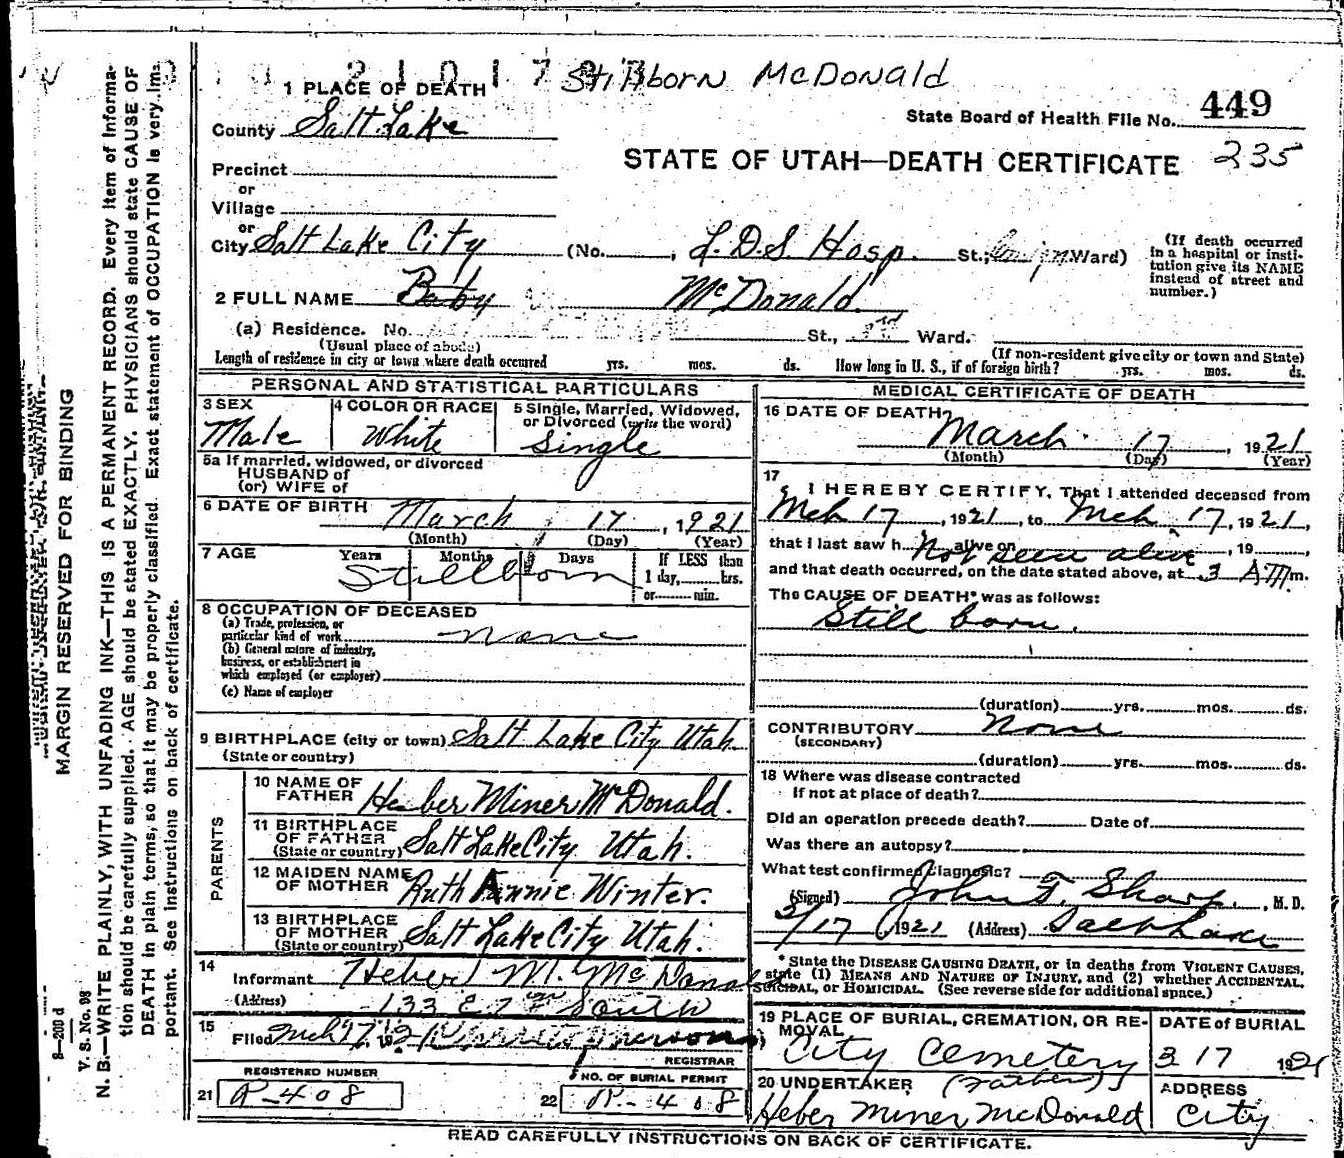 Stillborn McDonald
1 PLACE OF DEATH
State Board of Health File No. 449
County Salt Lake
STATE OF UTAH—DEATH CERTIFICATE 235
Precinct
or
Village
or
City Salt Lake City (No. , L.D.S. Hosp. St.; Ward)
(If death occurred in a hospital or institution give its NAME instead of street and number.)
2 FULL NAME Baby McDonald.
(a) Residence. No. St., Ward.
(Usual place of abode) (If non-resident give city or town and State)
Length of residence in city or town where death occurred yrs. mos. ds. How long in U. S., if of foreign birth? yrs. mos. ds.
PERSONAL AND STATISTICAL PARTICULARS
3 SEX Male
4 COLOR OR RACE White
5 Single, Married, Widowed, or Divorced (write the word) Single
5a If married, widowed, or divorced
HUSBAND of
(or) WIFE of
6 DATE OF BIRTH March 17, 1921
(Month) (Day) (Year)
7 AGE Years Months Days If LESS than
1 day, hrs.
or min.
Stillborn
8 OCCUPATION OF DECEASED
(a) Trade, profession, or
particular kind of work none
(b) General nature of industry,
business, or establishment in
which employed (or employer)
(c) Name of employer
9 BIRTHPLACE (city or town) Salt Lake City Utah
(State or country)
PARENTS
10 NAME OF FATHER Heber Miner McDonald.
11 BIRTHPLACE OF FATHER (State or country) Salt Lake City Utah.
12 MAIDEN NAME OF MOTHER Ruth Annie Winter.
13 BIRTHPLACE OF MOTHER (State or country) Salt Lake City Utah.
14
Informant Heber M. McDonald
(Address) 133 E. 7th South
15
Filed Mch 17,
REGISTRAR
REGISTERED NUMBER
21 P-408
NO. OF BURIAL PERMIT
22 P-408
MEDICAL CERTIFICATE OF DEATH
16 DATE OF DEATH
March 17, 1921
(Month) (Day) (Year)
17
I HEREBY CERTIFY, That I attended deceased from
Mch 17, 1921, to Mch 17, 1921,
that I last saw h alive on Not seen alive, 19
and that death occurred, on the date stated above, at 3 AM m.
The CAUSE OF DEATH* was as follows:
Still born.
(duration) yrs. mos. ds.
CONTRIBUTORY None
(SECONDARY)
(duration) yrs. mos. ds.
18 Where was disease contracted
If not at place of death?
Did an operation precede death? Date of
Was there an autopsy?
What test confirmed diagnosis?
(Signed) John F. Sharp, M. D.
3/17 1921 (Address) Salt Lake
* State the DISEASE CAUSING DEATH, or in deaths from VIOLENT CAUSES,
state (1) MEANS AND NATURE OF INJURY, and (2) whether ACCIDENTAL,
SUICIDAL, or HOMICIDAL. (See reverse side for additional space.)
19 PLACE OF BURIAL, CREMATION, OR REMOVAL
City Cemetery
DATE of BURIAL
3 17 1921
20 UNDERTAKER (Father)
Heber Miner McDonald
ADDRESS
City
READ CAREFULLY INSTRUCTIONS ON BACK OF CERTIFICATE.
MARGIN RESERVED FOR BINDING
V. S. No. 98
N. B.—WRITE PLAINLY, WITH UNFADING INK—THIS IS A PERMANENT RECORD. Every item of informa-
tion should be carefully supplied. AGE should be stated EXACTLY. PHYSICIANS should state CAUSE OF
DEATH in plain terms, so that it may be properly classified. Exact statement of OCCUPATION is very im-
portant. See instructions on back of certificate.